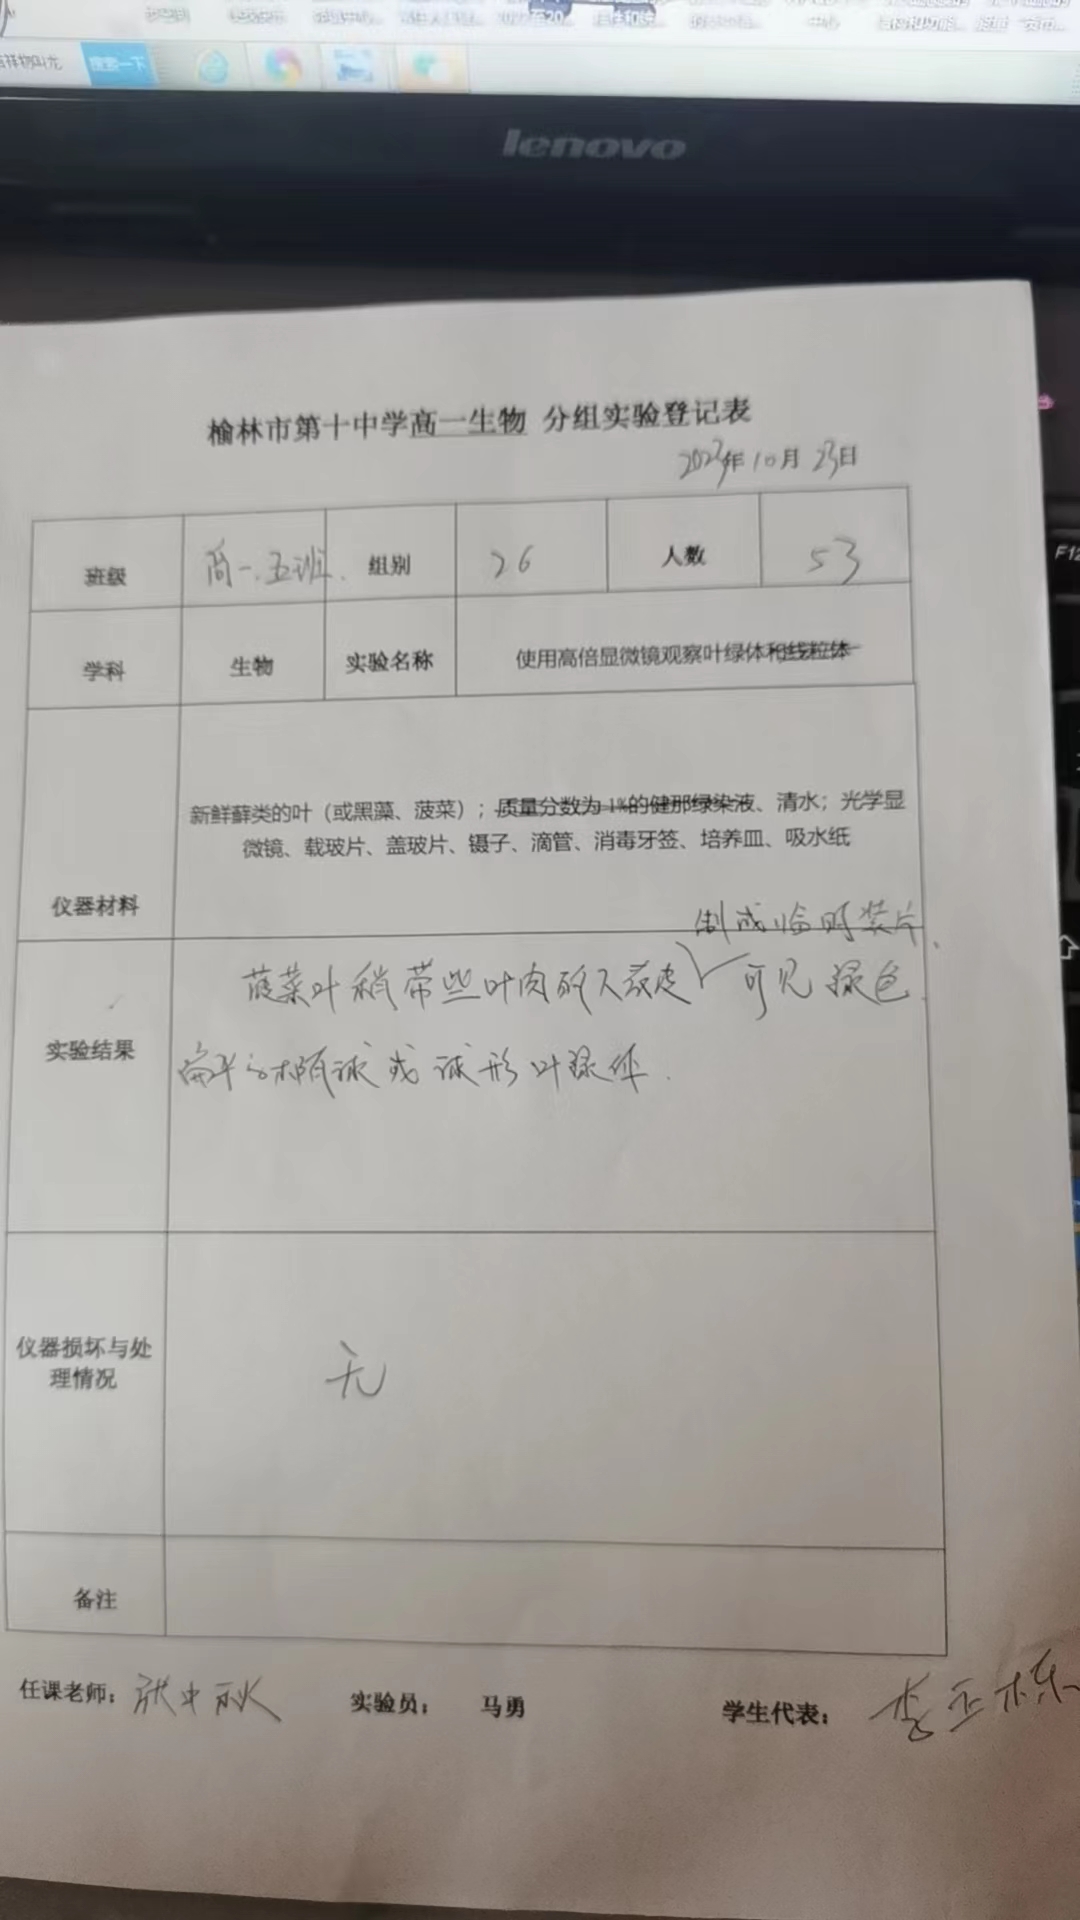 搜索一下
lenovo
榆林市第十中学高一生物 分组实验登记表
2023年10月23日
班级 高一.五班. 组别 26 人数 53
学科 生物 实验名称 使用高倍显微镜观察叶绿体和线粒体
新鲜藓类的叶（或黑藻、菠菜）；质量分数为1%的健那绿染液、清水；光学显
微镜、载玻片、盖玻片、镊子、滴管、消毒牙签、培养皿、吸水纸
仪器材料
制成临时装片.
菠菜叶稍带些叶肉的下表皮 可见绿色
实验结果
扁平的椭球或球形叶绿体.
仪器损坏与处
理情况
无
备注
任课老师: 张中秋 实验员: 马勇 学生代表: 李正栋
F12